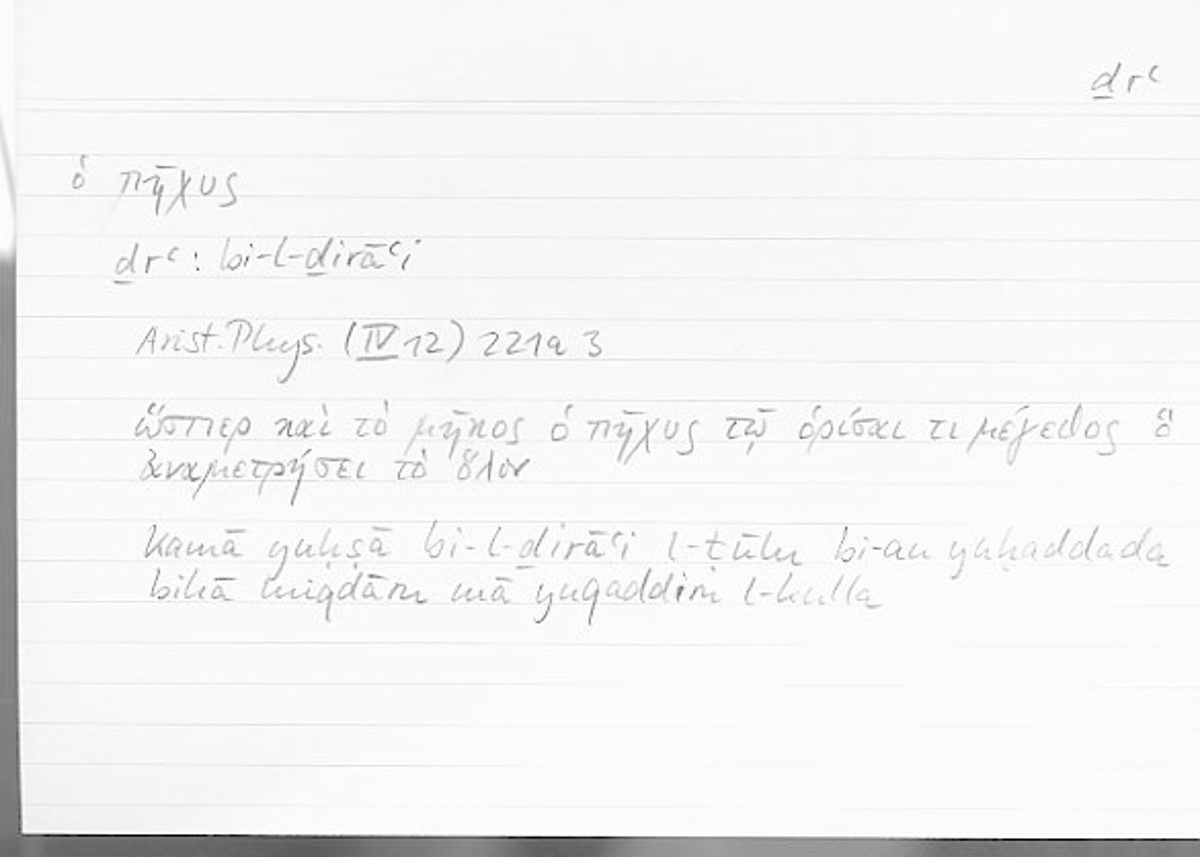 ḏrʿ
ὁ πῆχυς
ḏrʿ: bi-l-ḏirāʿi
Arist. Phys. (IV 12) 221a 3
ὥσπερ καὶ τὸ μῆκος ὁ πῆχυς τῷ ὁρίσαι τι μέγεθος ὃ
ἀναμετρήσει τὸ ὅλον
kamā yuḥṣā bi-l-ḏirāʿi l-ṭūlu bi-an yuḥaddada
bihā miqdāru mā yuqaddiru l-kulla